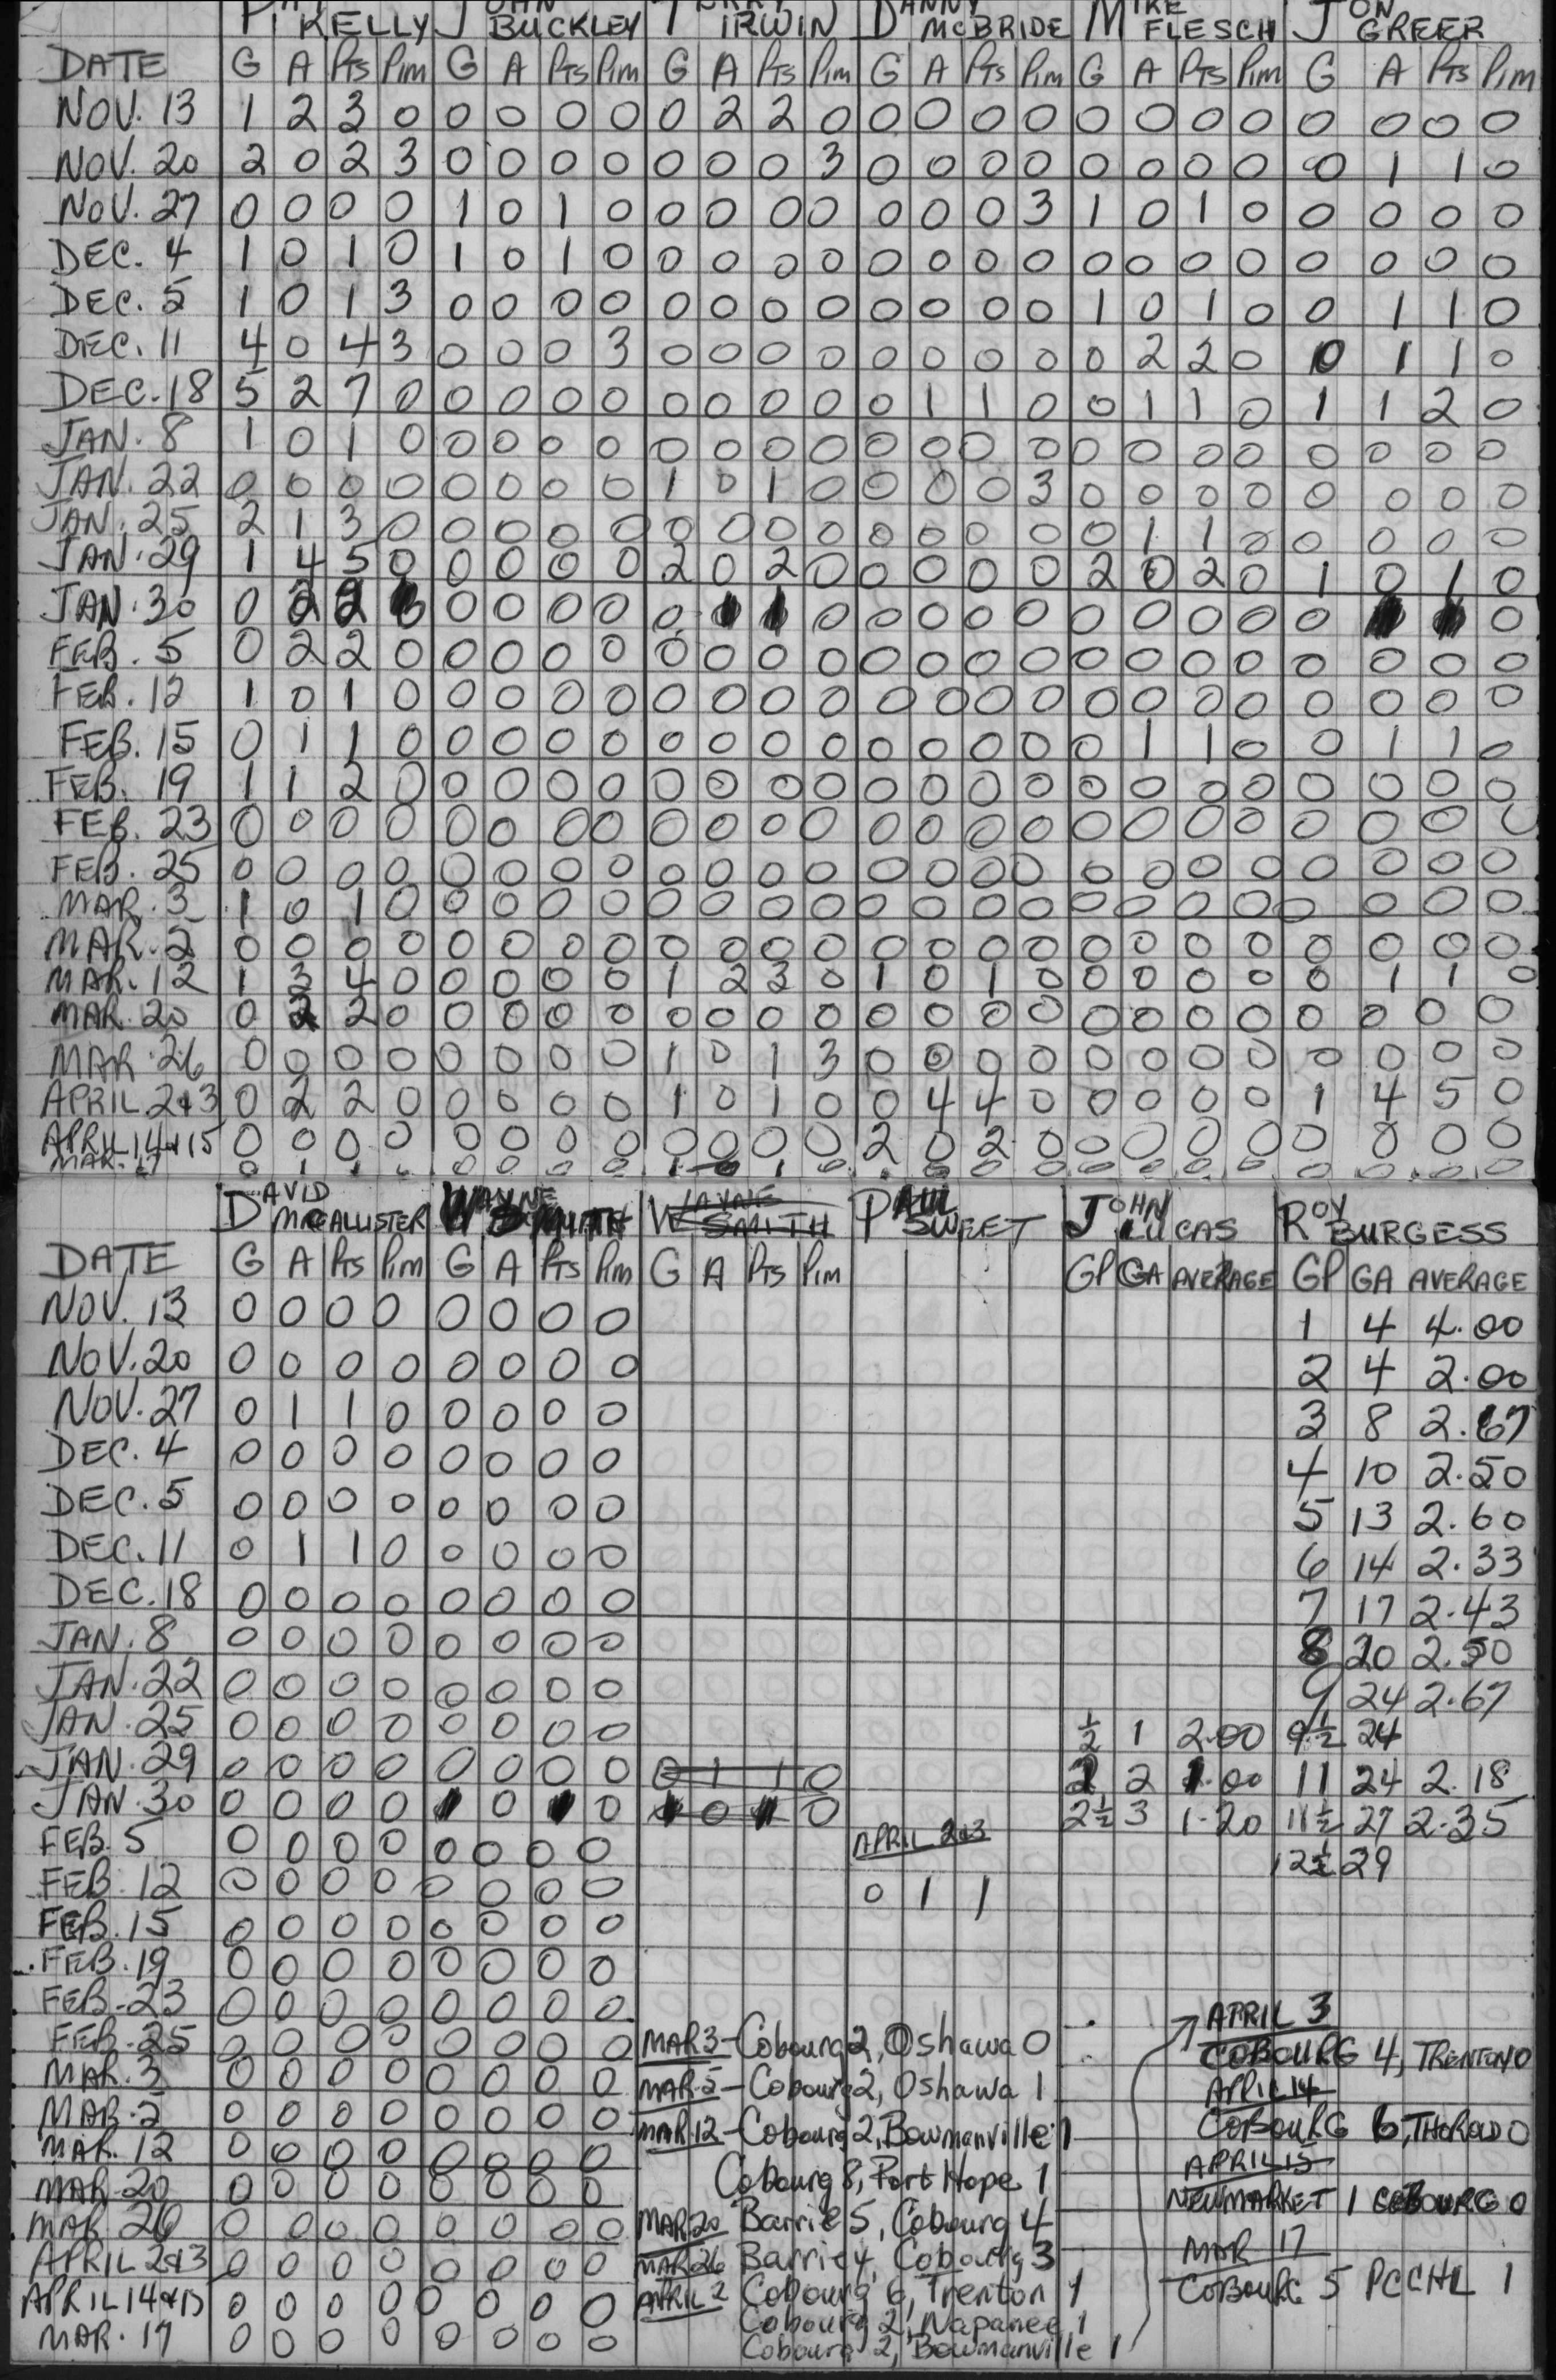 PAT KELLY JOHN BUCKLEY TERRY IRWIN DANNY McBRIDE MIKE FLESCH JON GREER
DATE G A PTS PIM G A PTS PIM G A PTS PIM G A PTS PIM G A PTS PIM G A PTS PIM
NOV. 13 1 2 3 0 0 0 0 0 0 2 2 0 0 0 0 0 0 0 0 0 0 0 0 0
NOV. 20 2 0 2 3 0 0 0 0 0 0 0 3 0 0 0 0 0 0 0 0 0 1 1 0
NOV. 27 0 0 0 0 1 0 1 0 0 0 0 0 0 0 0 3 1 0 1 0 0 0 0 0
DEC. 4 1 0 1 0 1 0 1 0 0 0 0 0 0 0 0 0 0 0 0 0 0 0 0 0
DEC. 5 1 0 1 3 0 0 0 0 0 0 0 0 0 0 0 0 1 0 1 0 0 1 1 0
DEC. 11 4 0 4 3 0 0 0 3 0 0 0 0 0 0 0 0 0 2 2 0 0 1 1 0
DEC. 18 5 2 7 0 0 0 0 0 0 0 0 0 0 1 1 0 0 1 1 0 1 1 2 0
JAN. 8 1 0 1 0 0 0 0 0 0 0 0 0 0 0 0 0 0 0 0 0 0 0 0 0
JAN. 22 0 0 0 0 0 0 0 0 1 0 1 0 0 0 0 3 0 0 0 0 0 0 0 0
JAN. 25 2 1 3 0 0 0 0 0 0 0 0 0 0 0 0 0 0 1 1 0 0 0 0 0
JAN. 29 1 4 5 0 0 0 0 0 2 0 2 0 0 0 0 0 2 0 2 0 1 0 1 0
JAN. 30 0 2 2 0 0 0 0 0 1 1 0 0 0 0 0 0 0 0 0 0 0
FEB. 5 0 2 2 0 0 0 0 0 0 0 0 0 0 0 0 0 0 0 0 0 0 0 0 0
FEB. 12 1 0 1 0 0 0 0 0 0 0 0 0 0 0 0 0 0 0 0 0 0 0 0 0
FEB. 15 0 1 1 0 0 0 0 0 0 0 0 0 0 0 0 0 0 1 1 0 0 1 1 0
FEB. 19 1 1 2 0 0 0 0 0 0 0 0 0 0 0 0 0 0 0 0 0 0 0 0 0
FEB. 23 0 0 0 0 0 0 0 0 0 0 0 0 0 0 0 0 0 0 0 0 0 0 0 0
FEB. 25 0 0 0 0 0 0 0 0 0 0 0 0 0 0 0 0 0 0 0 0 0 0 0 0
MAR. 3 1 0 1 0 0 0 0 0 0 0 0 0 0 0 0 0 0 0 0 0 0 0 0 0
MAR. 5 0 0 0 0 0 0 0 0 0 0 0 0 0 0 0 0 0 0 0 0 0 0 0 0
MAR. 12 1 3 4 0 0 0 0 0 1 2 3 0 1 0 1 0 0 0 0 0 0 1 1 0
MAR. 20 0 2 2 0 0 0 0 0 0 0 0 0 0 0 0 0 0 0 0 0 0 0 0 0
MAR. 26 0 0 0 0 0 0 0 0 1 0 1 3 0 0 0 0 0 0 0 0 0 0 0 0
APRIL 2&3 0 2 2 0 0 0 0 0 1 0 1 0 0 4 4 0 0 0 0 0 1 4 5 0
APRIL 14&15 0 0 0 0 0 0 0 0 0 0 0 0 2 0 2 0 0 0 0 0 0 0 0 0
MAR. 17 0 1 1 0 0 0 0 0 1 0 1 0 0 0 0 0 0 0 0 0 0 0 0 0
DAVID McCALLISTER WAYNE SMITH WAYNE SMITH PAUL SWEET JOHN LUCAS ROY BURGESS
DATE G A PTS PIM G A PTS PIM G A PTS PIM GP GA AVERAGE GP GA AVERAGE
NOV. 13 0 0 0 0 0 0 0 0 1 4 4.00
NOV. 20 0 0 0 0 0 0 0 0 2 4 2.00
NOV. 27 0 1 1 0 0 0 0 0 3 8 2.67
DEC. 4 0 0 0 0 0 0 0 0 4 10 2.50
DEC. 5 0 0 0 0 0 0 0 0 5 13 2.60
DEC. 11 0 1 1 0 0 0 0 0 6 14 2.33
DEC. 18 0 0 0 0 0 0 0 0 7 17 2.43
JAN. 8 0 0 0 0 0 0 0 0 8 20 2.50
JAN. 22 0 0 0 0 0 0 0 0 9 24 2.67
JAN. 25 0 0 0 0 0 0 0 0 ½ 1 2.00 9½ 24
JAN. 29 0 0 0 0 0 0 0 0 0 1 1 0 2 2 1.00 11 24 2.18
JAN. 30 0 0 0 0 0 0 0 0 2½ 3 1.20 11½ 27 2.35
FEB. 5 0 0 0 0 0 0 0 0 APRIL 2&3 12½ 29
FEB. 12 0 0 0 0 0 0 0 0 0 1 1
FEB. 15 0 0 0 0 0 0 0 0
FEB. 19 0 0 0 0 0 0 0 0
FEB. 23 0 0 0 0 0 0 0 0 APRIL 3
FEB. 25 0 0 0 0 0 0 0 0 MAR 3 - Cobourg 2, Oshawa 0 COBOURG 4, TRENTON 0
MAR. 3 0 0 0 0 0 0 0 0 MAR 5 - Cobourg 2, Oshawa 1 APRIL 14
MAR. 5 0 0 0 0 0 0 0 0 MAR. 12 - Cobourg 2, Bowmanville 1 COBOURG 6, THOROLD 0
MAR. 12 0 0 0 0 0 0 0 0 Cobourg 8, Port Hope 1 APRIL 15
MAR. 20 0 0 0 0 0 0 0 0 MAR 20 Barrie 5, Cobourg 4 NEWMARKET 1 COBOURG 0
MAR 26 0 0 0 0 0 0 0 0 MAR 26 Barrie 4, Cobourg 3 MAR 17
APRIL 2&3 0 0 0 0 0 0 0 0 APRIL 2 Cobourg 6, Trenton 1 COBOURG 5 PCCHL 1
APRIL 14&15 0 0 0 0 0 0 0 0 Cobourg 2, Napanee 1
MAR. 17 0 0 0 0 0 0 0 0 Cobourg 2, Bowmanville 1